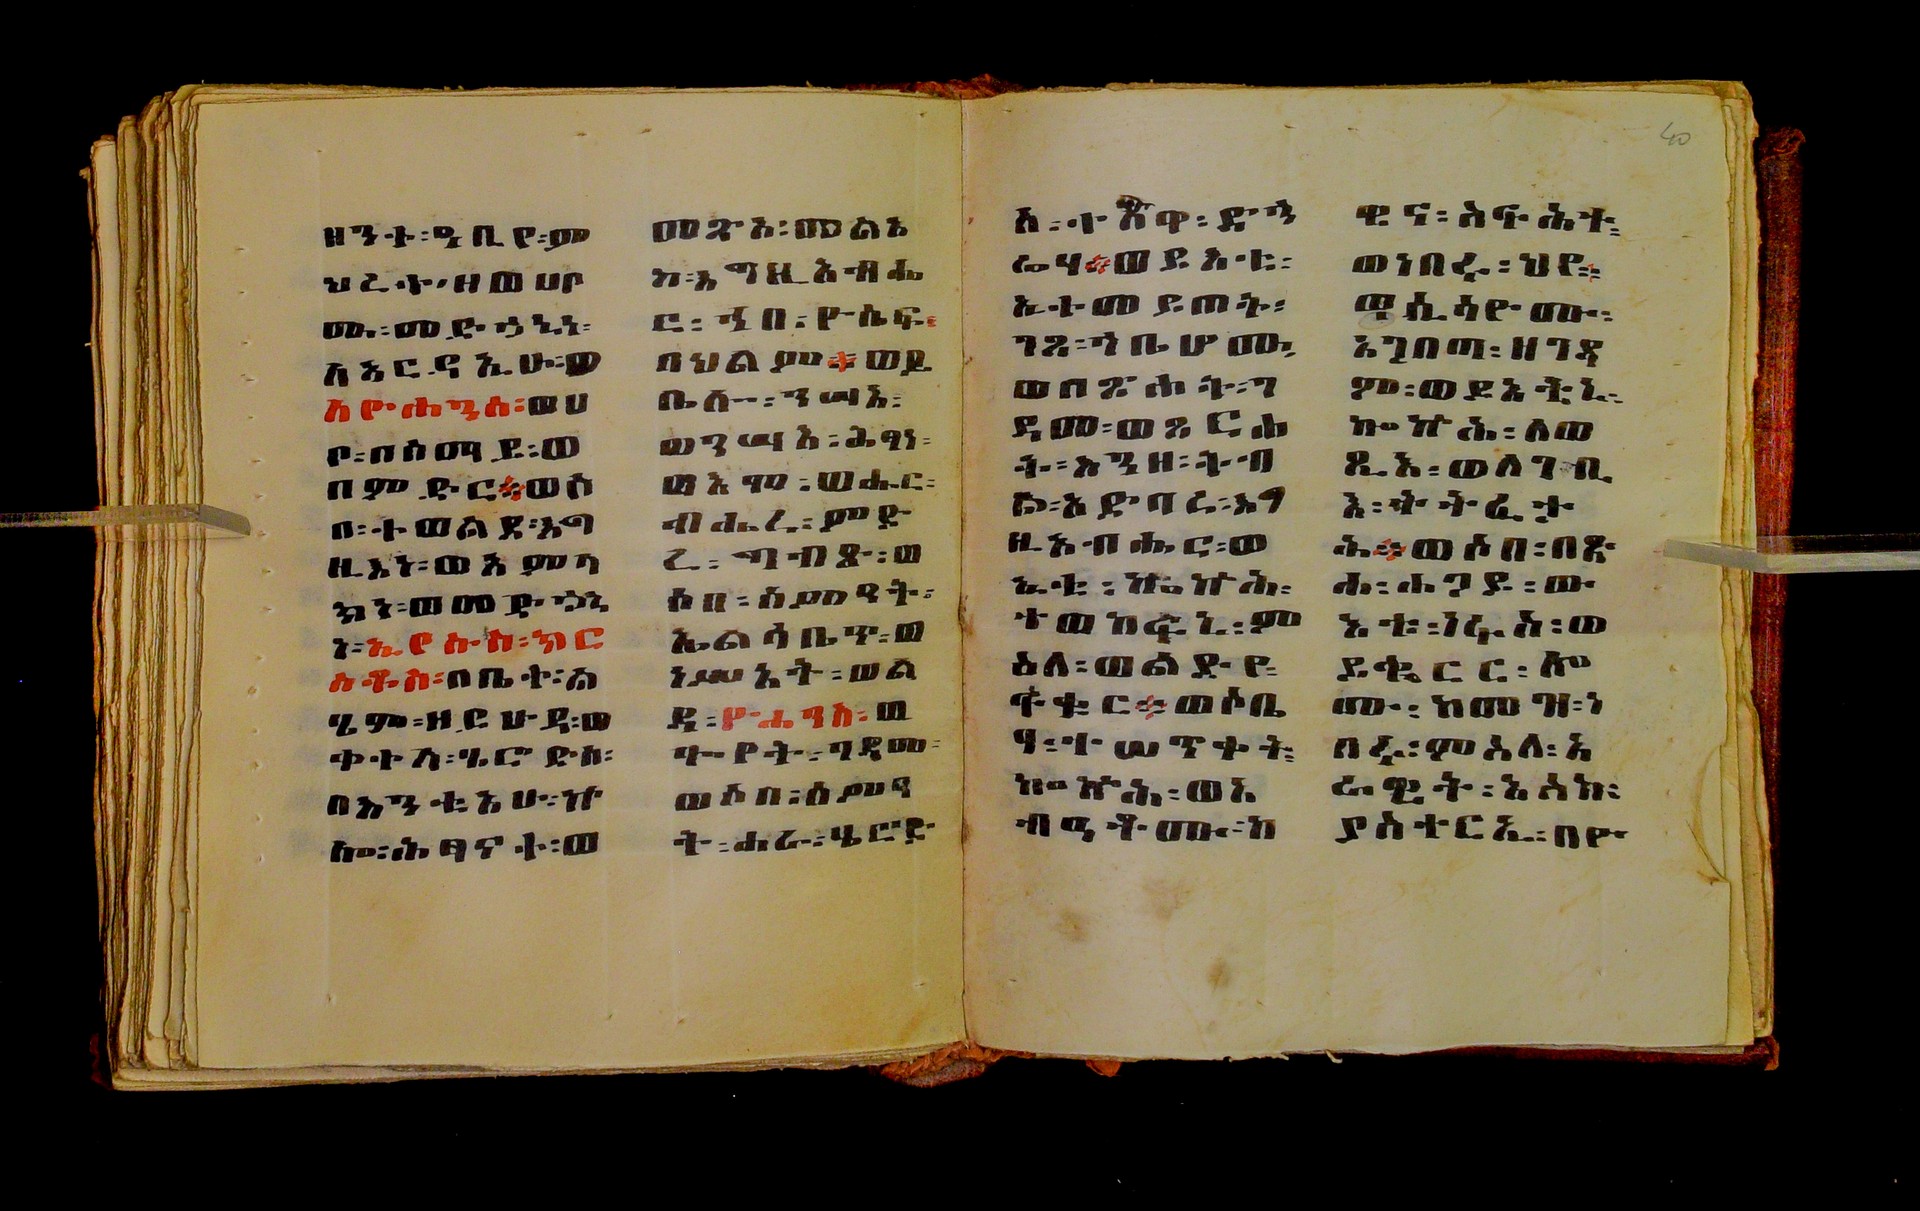 ዘንተ፡ዓቢየ፡ም
ህረተ፡ዘወሀቦ
ሙ፡መድኃኒነ፡
ለአርዳኢሁ፡ወ
ለዮሐንስ፡ወሀ
ቦ፡በሰማይ፡ወ
በምድር፨ወሶ
በ፡ተወልደ፡እግ
ዚእነ፡ወአምላ
ክነ፡ወመድኃኒ
ነ፡ኢየሱስ፡ክር
ስቶስ፡በቤተ፡ል
ሄም፡ዘይሁዳ፡ወ
ቀተለ፡ሄሮድስ፡
በእንቲአሁ፡ኵ
ሎ፡ሕፃናተ፡ወ
መጽአ፡መልአ
ከ፡እግዚአብሔ
ር፡ኀበ፡ዮሴፍ፡
በህልም፨ወይ
ቤሎ፡ንሣእ፡
ወንሣእ፡ሕፃነ፡
ወእሞ፡ወሑር፡
ብሔረ፡ምድ
ረ፡ግብጽ፡ወ
ሶበ፡ሰምዐት፡
ኤልሳቤጥ፡ወ
ነሥአት፡ወል
ዳ፡ዮሐንስ፡ወ
ጐየት፡ገዳመ፡
ወሶበ፡ሰምዐ
ት፡ሐራ፡ሄሮድ
ስ፡ተአዋ፡ድን
ጋፄሃ፨ወይእቲ፡
ኢተመይጠት፡
ገጻ፡ኀቤሆሙ፡
ወበጽሐት፡ገ
ዳመ፡ወጸርሐ
ት፡እንዘ፡ትብ
ል፡አድባረ፡እግ
ዚአብሔር፡ወ
ኢቲ፡ኰኵሕ፡
ተወከፍኒ፡ም
ስለ፡ወልድየ፡
ፍቁር፨ወሶቤ
ሃ፡ተሠጥቀት፡
ኰኵሕ፡ወአ
ብዓቶሙ፡ከ
ዊና፡ስፍሕተ፡
ወነበሩ፡ህየ፡
ወሲሳዮሙ፡
አንበጣ፡ዘገዳ
ም፡ወይእቲኒ፡
ኰኵሕ፡ለወ
ጺእ፡ወለገቢ
እ፡ትትፈታ
ሕ፨ወሶበ፡በጽ
ሐ፡ሐጋይ፡ው
እቱ፡ነፋስ፡ወ
ይቁርር፡ሎ
ሙ፡ከመዝ፡ነ
በሩ፡ምስለ፡አ
ራዊት፡እስከ፡
ያስተርኢ፡በዮ
40